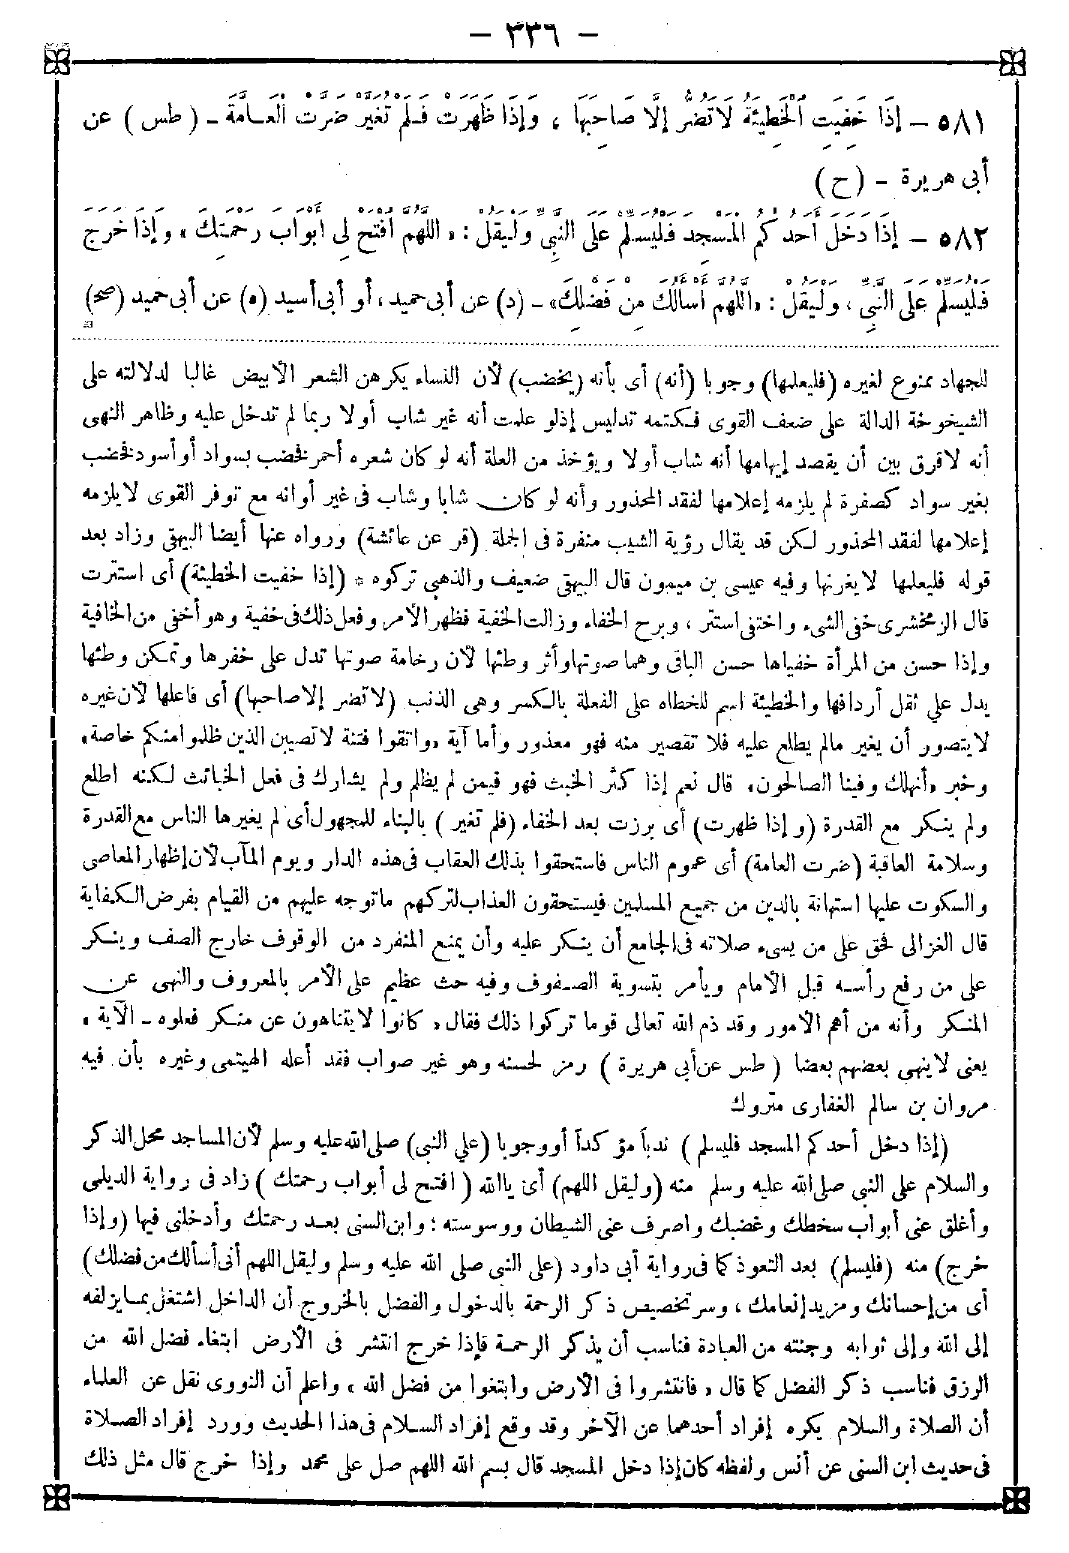 – ٣٣٦ –
٥٨١ – إِذَا خَفِيَتِ الْخَطِيئَةُ لَا تَضُرُّ إِلَّا صَاحِبَهَا ، وَإِذَا ظَهَرَتْ فَلَمْ تُغَيَّرْ ضَرَّتِ الْعَامَّةَ – ( طس ) عن
أبى هريرة – (ح)
٥٨٢ – إِذَا دَخَلَ أَحَدُكُمُ الْمَسْجِدَ فَلْيُسَلِّمْ عَلَى النَّبِيِّ وَلْيَقُلْ : « اللَّهُمَّ افْتَحْ لِي أَبْوَابَ رَحْمَتِكَ » وَإِذَا خَرَجَ
فَلْيُسَلِّمْ عَلَى النَّبِيِّ ، وَلْيَقُلْ : «اللَّهُمَّ أَسْأَلُكَ مِنْ فَضْلِكَ» – (د) عن أبى حميد ، أو أبى أسيد (ه) عن أبى حميد (صح)
للجهاد ممنوع لغيره (فليعلمها) وجوبا (أنه) أى بأنه (يخضب) لأن النساء يكرهن الشعر الأبيض غالبا لدلالته على
الشيخوخة الدالة على ضعف القوى فكتمه تدليس إذلو علمت أنه غير شاب أولا ربما لم تدخل عليه وظاهر النهى
أنه لافرق بين أن يقصد إيهامها أنه شاب أولا ويؤخذ من العلة أنه لو كان شعره أحمر فخضب بسواد أو أسود فخضب
بغير سواد كصفرة لم يلزمه إعلامها لفقد المحذور وأنه لو كان شابا وشاب فى غير أوانه مع توفر القوى لا يلزمه
إعلامها لفقد المحذور لكن قد يقال رؤية الشيب منفرة فى الجملة (فر عن عائشة) ورواه عنها أيضا البيهقى وزاد بعد
قوله فليعلمها لا يغرنها وفيه عيسى بن ميمون قال البيهقى ضعيف والذهبى تركوه * (إذا خفيت الخطيئة) أى استترت
قال الزمخشرى خفى الشىء واختفى استتر ، وبرح الخفاء وزالت الخفية فظهر الأمر وفعل ذلك فى خفية وهو أخفى من الخافية
وإذا حسن من المرأة خفياها حسن الباقى وهما صوتها وأثر وطئها لأن رخامة صوتها تدل على خفرها وتمكن وطئها
يدل على ثقل أردافها والخطيئة اسم للخطاه على الفعلة بالكسر وهى الذنب (لا تضر إلا صاحبها) أى فاعلها لأن غيره
لا يتصور أن يغير مالم يطلع عليه فلا تقصير منه فهو معذور وأما آية «واتقوا فتنة لا تصيبن الذين ظلموا منكم خاصة»
وخبر «أنهلك وفينا الصالحون» قال نعم إذا كثر الخبث فهو فيمن لم يظلم ولم يشارك فى فعل الخبائث لكنه اطلع
ولم ينكر مع القدرة (وإذا ظهرت) أى برزت بعد الخفاء (فلم تغير ) بالبناء للمجهول أى لم يغيرها الناس مع القدرة
وسلامة العاقبة (ضرت العامة) أى عموم الناس فاستحقوا بذلك العقاب فى هذه الدار ويوم المآب لأن إظهار المعاصى
والسكوت عليها استهانة بالدين من جميع المسلمين فيستحقون العذاب لتركهم ما توجه عليهم من القيام بفرض الكفاية
قال الغزالى فحق على من يسىء صلاته فى الجامع أن ينكر عليه وأن يمنع المنفرد من الوقوف خارج الصف وينكر
على من رفع رأسه قبل الامام ويأمر بتسوية الصفوف وفيه حث عظيم على الأمر بالمعروف والنهى عن
المنكر وأنه من أهم الأمور وقد ذم الله تعالى قوما تركوا ذلك فقال « كانوا لا يتناهون عن منكر فعلوه – الآية »
يعنى لا ينهى بعضهم بعضا ( طس عن أبى هريرة ) رمز لحسنه وهو غير صواب فقد أعله الهيتمى وغيره بأن فيه
مروان بن سالم الغفارى متروك
(إذا دخل أحدكم المسجد فليسلم ) ندباً مؤكداً أو وجوبا (على النبى) صلى الله عليه وسلم لأن المساجد محل الذكر
والسلام على النبى صلى الله عليه وسلم منه (وليقل اللهم) أى يا الله ( افتح لى أبواب رحمتك ) زاد فى رواية الديلمى
وأغلق عنى أبواب سخطك وغضبك واصرف عنى الشيطان ووسوسته : وابن السنى بعد رحمتك وأدخلنى فيها (وإذا
خرج) منه (فليسلم) بعد التعوذ كما فى رواية أبى داود (على النبى صلى الله عليه وسلم وليقل اللهم أنى أسألك من فضلك)
أى من إحسانك ومزيد إنعامك ، وسر تخصيص ذكر الرحمة بالدخول والفضل بالخروج أن الداخل اشتغل بما يزلفه
إلى الله وإلى ثوابه وجنته من العبادة فناسب أن يذكر الرحمة فإذا خرج انتشر فى الأرض ابتغاء فضل الله من
الرزق فناسب ذكر الفضل كما قال « فانتشروا فى الأرض وابتغوا من فضل الله » واعلم أن النووى نقل عن العلماء
أن الصلاة والسلام يكره إفراد أحدهما عن الآخر وقد وقع إفراد السلام فى هذا الحديث وورد إفراد الصلاة
فى حديث ابن السنى عن أنس ولفظه كان إذا دخل المسجد قال بسم الله اللهم صل على محمد وإذا خرج قال مثل ذلك